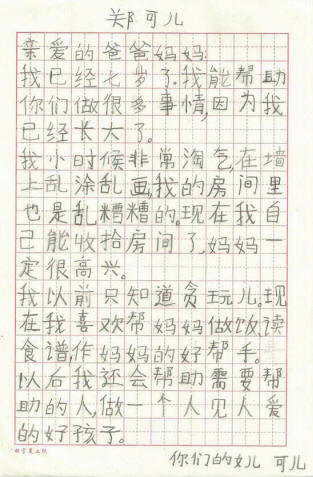 郑可儿
亲爱的爸爸妈妈:
我已经七岁了.我能帮助
你们做很多事情,因为我
已经长大了。
我小时候非常淘气,在墙
上乱涂乱画,我的房间里
也是乱糟糟的。现在我自
己能收拾房间了,妈妈一
定很高兴。
我以前只知道贪玩儿。现
在我喜欢帮妈妈做饭,读
食谱,作妈妈的好帮手。
以后我还会帮助需要帮
助的人,做一个人见人爱
的好孩子。
你们的女儿 可儿